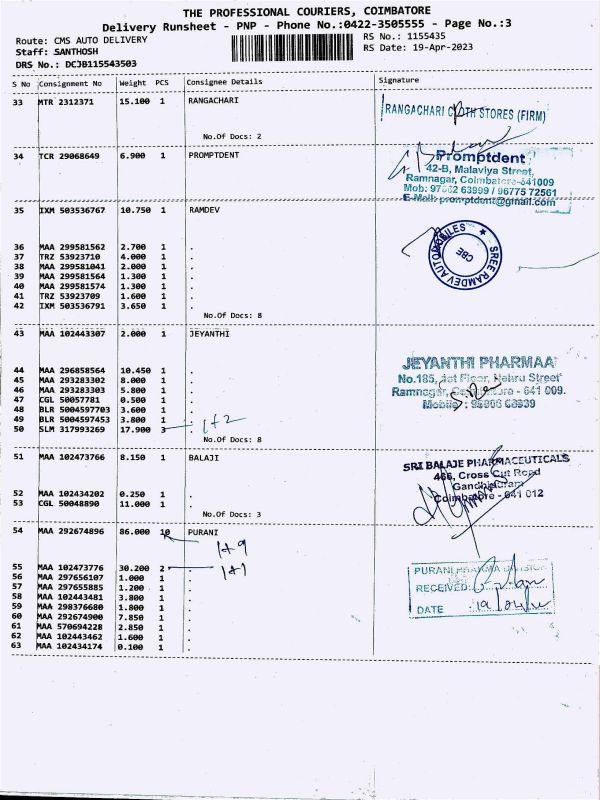 THE PROFESSIONAL COURIERS, COIMBATORE
Delivery Runsheet - PNP - Phone No.:0422-3505555 - Page No.:3
Route: CMS AUTO DELIVERY RS No.: 1155435
Staff: SANTHOSH RS Date: 19-Apr-2023
DRS No.: DCJB115543503
S No Consignment No Weight PCS Consignee Details Signature
33 MTR 2312371 15.100 1 RANGACHARI
RANGACHARI CLOTH STORES (FIRM)
No.Of Docs: 2
34 TCR 29068649 6.900 1 PROMPTDENT
Promptdent
42-B, Malaviya Street,
Ramnagar, Coimbatore-641009
Mob: 97862 63999 / 96775 72561
E-Mail: promptdent@gmail.com
35 IXM 503536767 10.750 1 RAMDEV
SREE RAMDEV AUTOMOBILES ★
CBE
36 MAA 299581562 2.700 1 .
37 TRZ 53923710 4.000 1 .
38 MAA 299581041 2.000 1 .
39 MAA 299581564 1.300 1 .
40 MAA 299581574 1.300 1 .
41 TRZ 53923709 1.600 1 .
42 IXM 503536791 3.650 1 .
No.Of Docs: 8
43 MAA 102443307 2.000 1 JEYANTHI
JEYANTHI PHARMAA
No.185, 1st Floor, Nehru Street
Ramnagar, Coimbatore - 641 009.
Mobile :
44 MAA 296858564 10.450 1 .
45 MAA 293283302 8.000 1 .
46 MAA 293283303 5.800 1 .
47 CGL 50057781 0.500 1 .
48 BLR 5004597703 3.600 1 .
49 BLR 5004597453 3.800 1 .
50 SLM 317993269 17.900 3 . 1+2
No.Of Docs: 8
51 MAA 102473766 8.150 1 BALAJI
SRI BALAJE PHARMACEUTICALS
466, Cross Cut Road
Gandhipuram
Coimbatore - 641 012
52 MAA 102434202 0.250 1 .
53 CGL 50048890 11.000 1 .
No.Of Docs: 3
54 MAA 292674896 86.000 10 PURANI
1+9
55 MAA 102473776 30.200 2 . 1+1
56 MAA 297656107 1.000 1 .
57 MAA 297655885 1.200 1 .
58 MAA 102443481 3.800 1 .
59 MAA 298376680 1.800 1 .
60 MAA 292674900 7.850 1 .
61 MAA 570694228 2.850 1 .
62 MAA 102443462 1.600 1 .
63 MAA 102434174 0.100 1 .
PURANI PHARMA DIVISION
RECEIVED:
DATE :